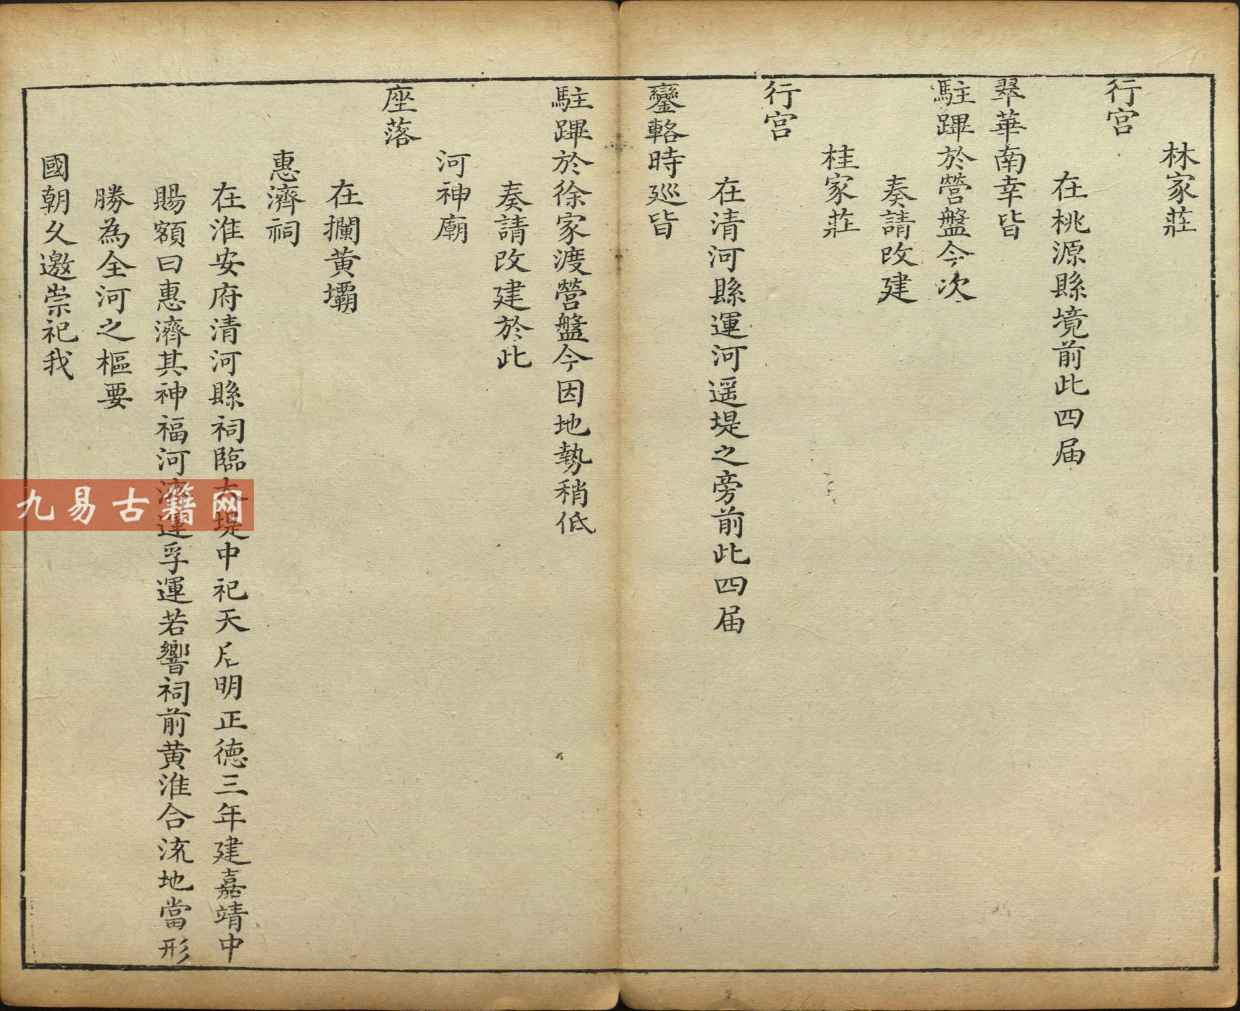 林家莊
行宫
在桃源縣境前此四届
翠華南幸皆
駐蹕於營盤今次
奏請改建
桂家莊
行宫
在清河縣運河遥堤之旁前此四届
鑾輅時廵皆
駐蹕於徐家渡營盤今因地勢稍低
奏請改建於此
河神廟
座落
在攔黄壩
惠濟祠
在淮安府清河縣祠臨堤中祀天后明正德三年建嘉靖中
賜額曰惠濟其神福河孚運若響祠前黄淮合流地當形
勝為全河之樞要
國朝久邀崇祀我
九易古籍网